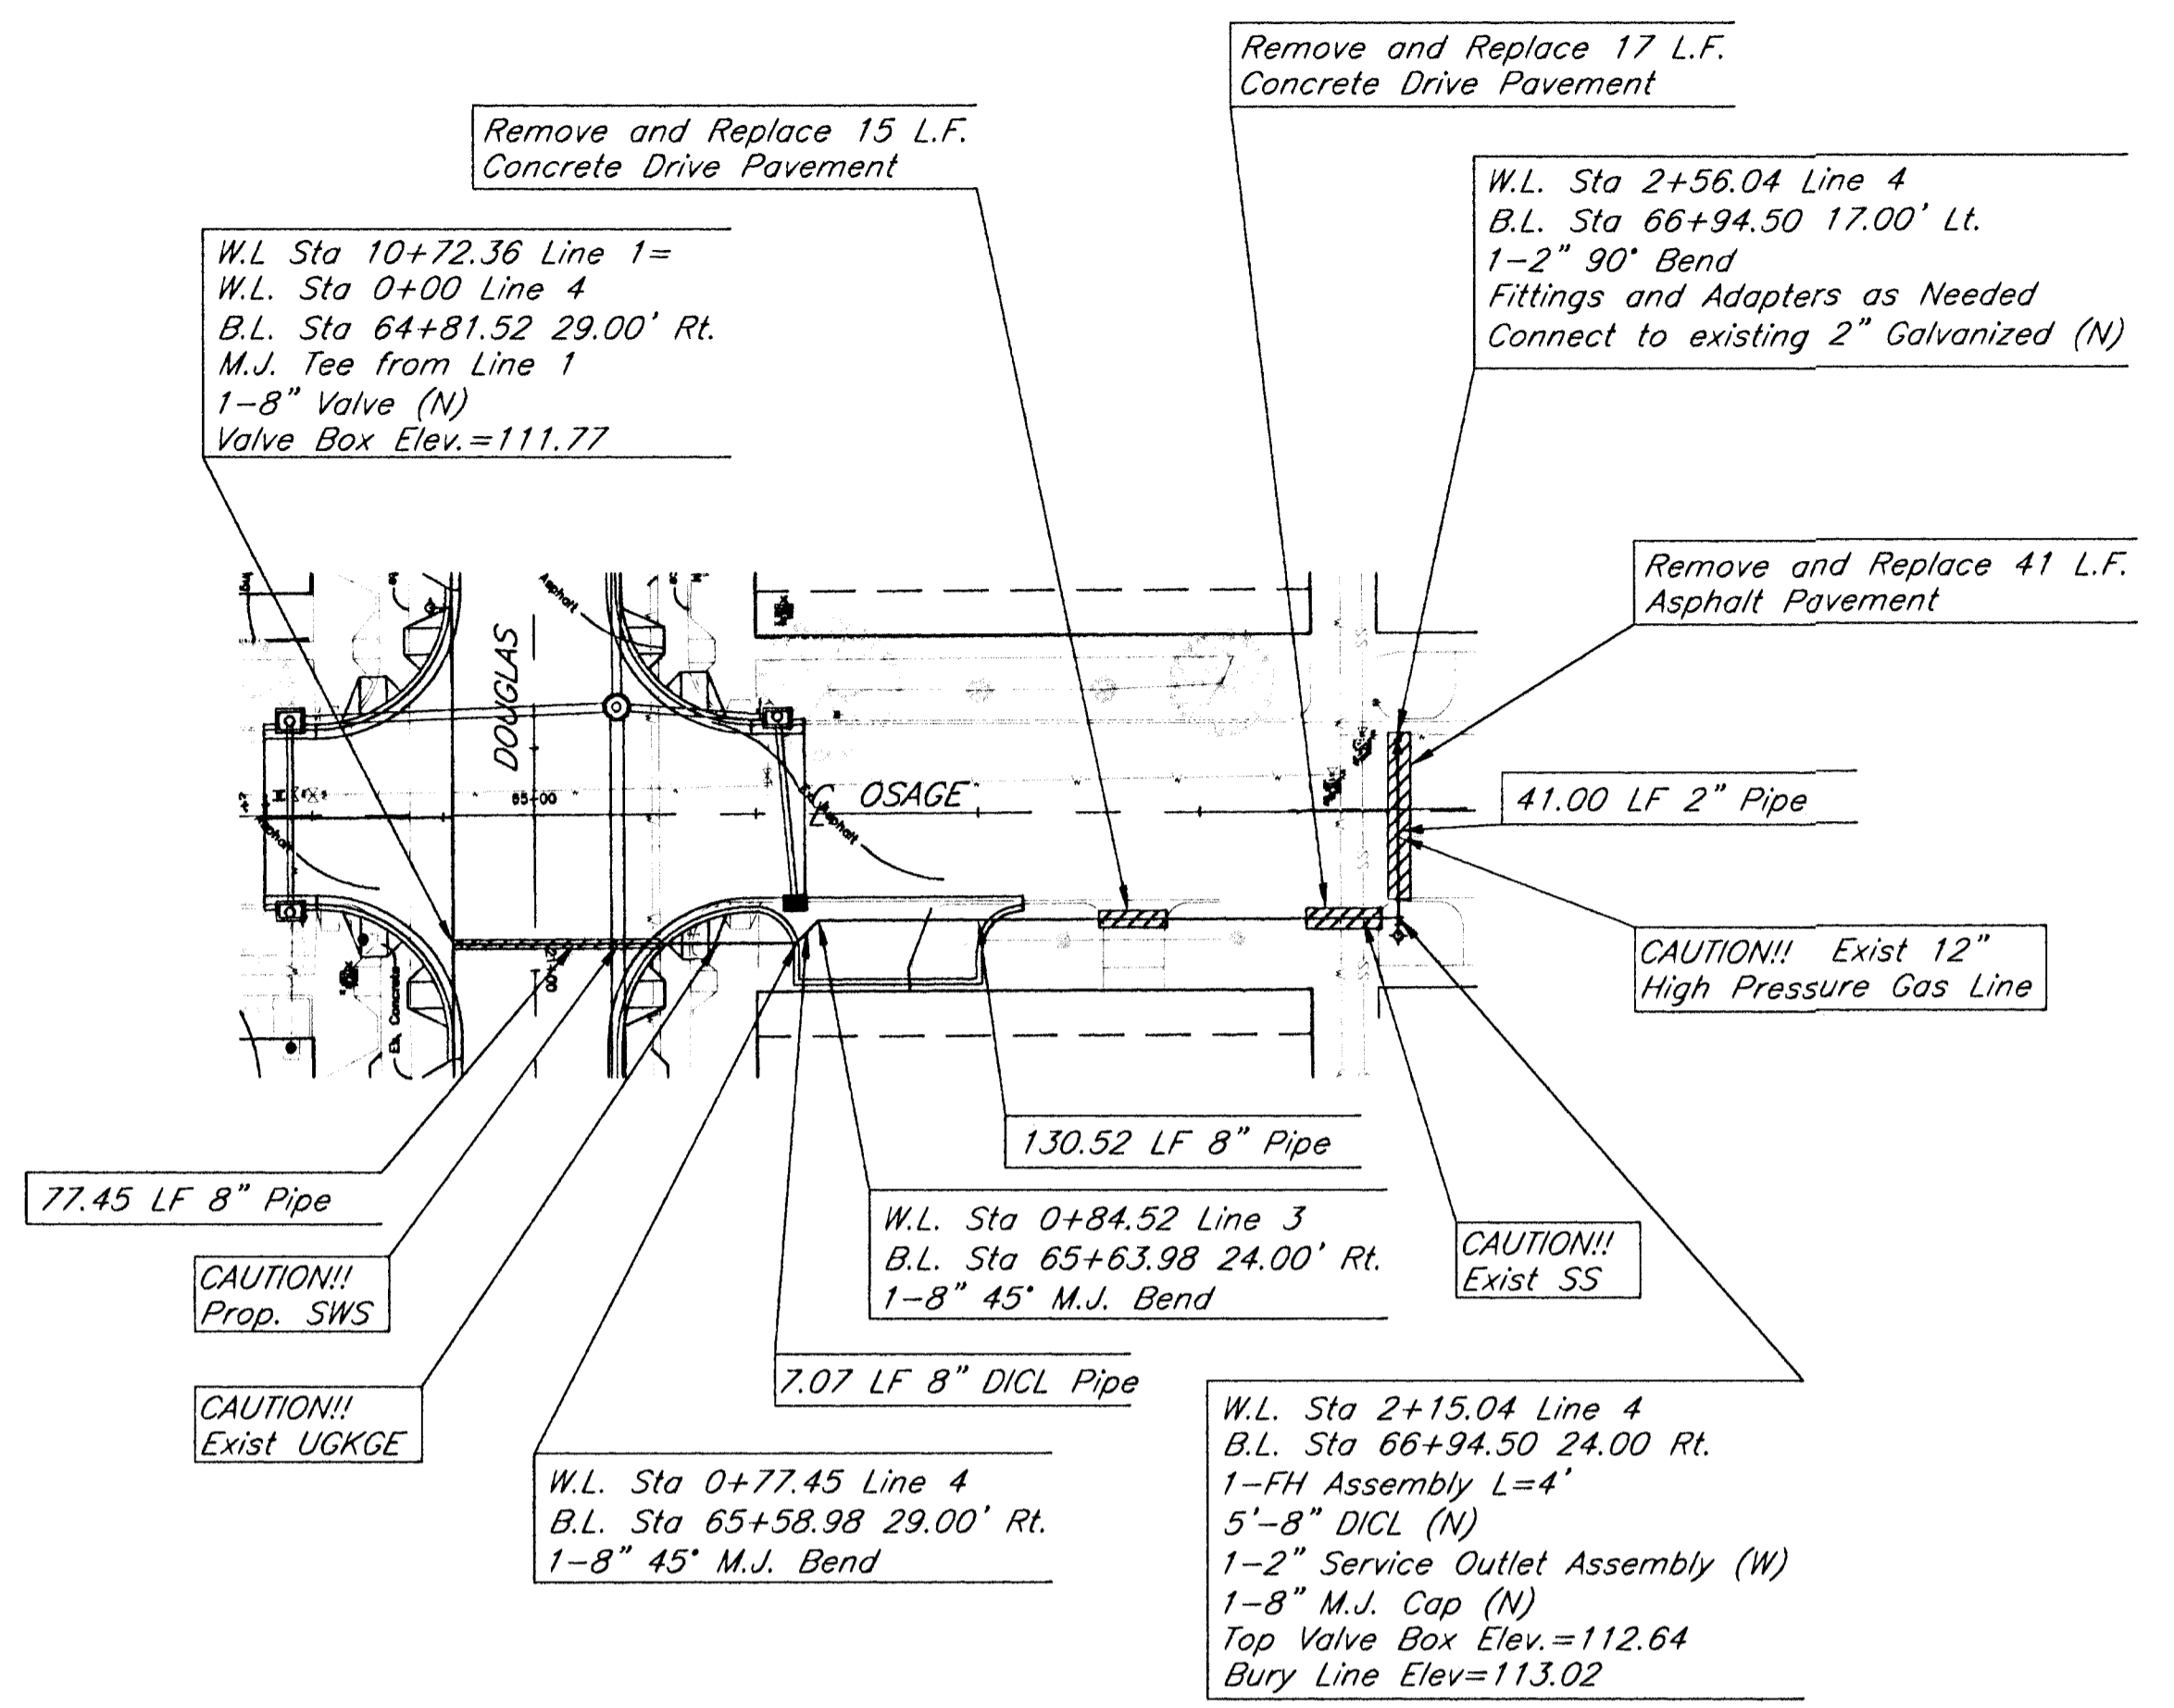 Remove and Replace 17 L.F.
Concrete Drive Pavement
Remove and Replace 15 L.F.
Concrete Drive Pavement
W.L. Sta 2+56.04 Line 4
B.L. Sta 66+94.50 17.00' Lt.
1-2" 90° Bend
Fittings and Adapters as Needed
Connect to existing 2" Galvanized (N)
W.L Sta 10+72.36 Line 1=
W.L. Sta 0+00 Line 4
B.L. Sta 64+81.52 29.00' Rt.
M.J. Tee from Line 1
1-8" Valve (N)
Valve Box Elev.=111.77
Remove and Replace 41 L.F.
Asphalt Pavement
Asphalt
DOUGLAS
65+00
℄ OSAGE
41.00 LF 2" Pipe
Asphalt
Ex. Concrete
CAUTION!! Exist 12"
High Pressure Gas Line
130.52 LF 8" Pipe
77.45 LF 8" Pipe
W.L. Sta 0+84.52 Line 3
B.L. Sta 65+63.98 24.00' Rt.
1-8" 45° M.J. Bend
CAUTION!!
Exist SS
CAUTION!!
Prop. SWS
7.07 LF 8" DICL Pipe
CAUTION!!
Exist UGKGE
W.L. Sta 2+15.04 Line 4
B.L. Sta 66+94.50 24.00 Rt.
1-FH Assembly L=4'
5'-8" DICL (N)
1-2" Service Outlet Assembly (W)
1-8" M.J. Cap (N)
Top Valve Box Elev.=112.64
Bury Line Elev=113.02
W.L. Sta 0+77.45 Line 4
B.L. Sta 65+58.98 29.00' Rt.
1-8" 45° M.J. Bend